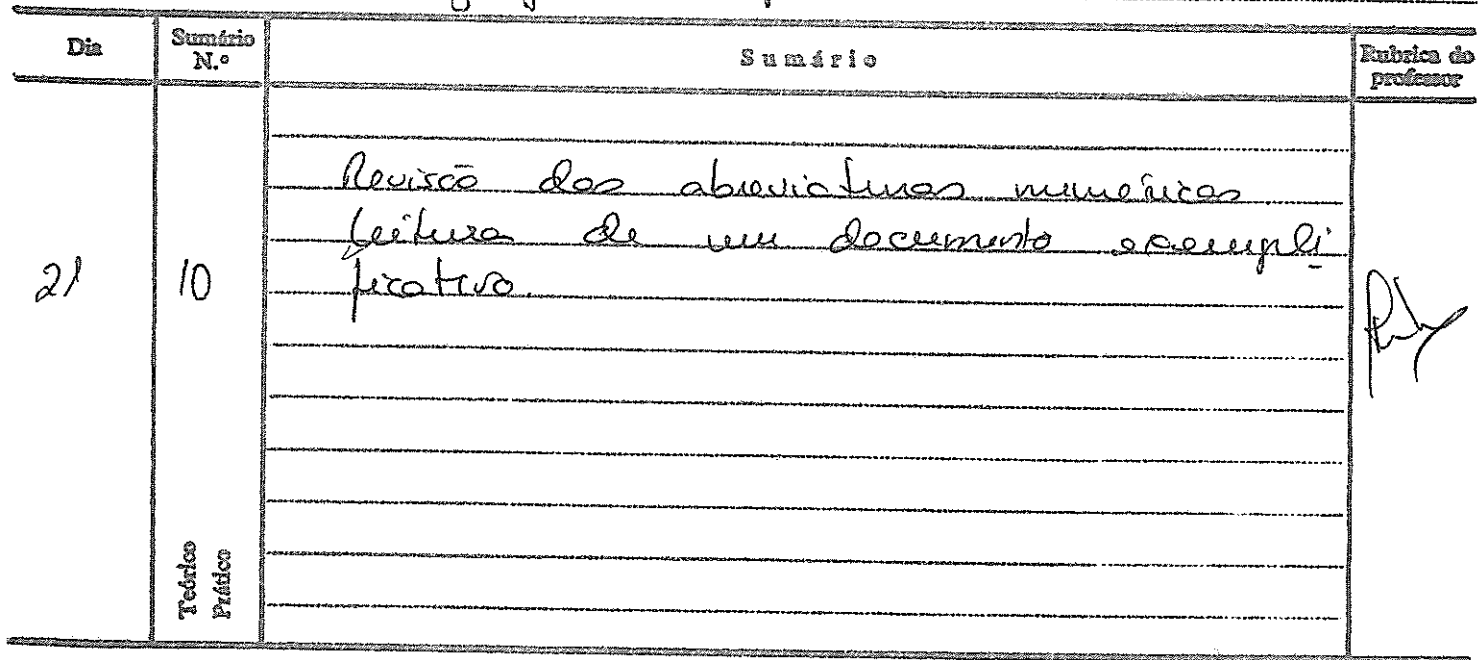 Dia
Sumário N.º
Sumário
Rubrica do professor
21
10
Revisão das abreviaturas numéricas.
Leitura de um documento exempli
ficativo.
Teórico
Prático